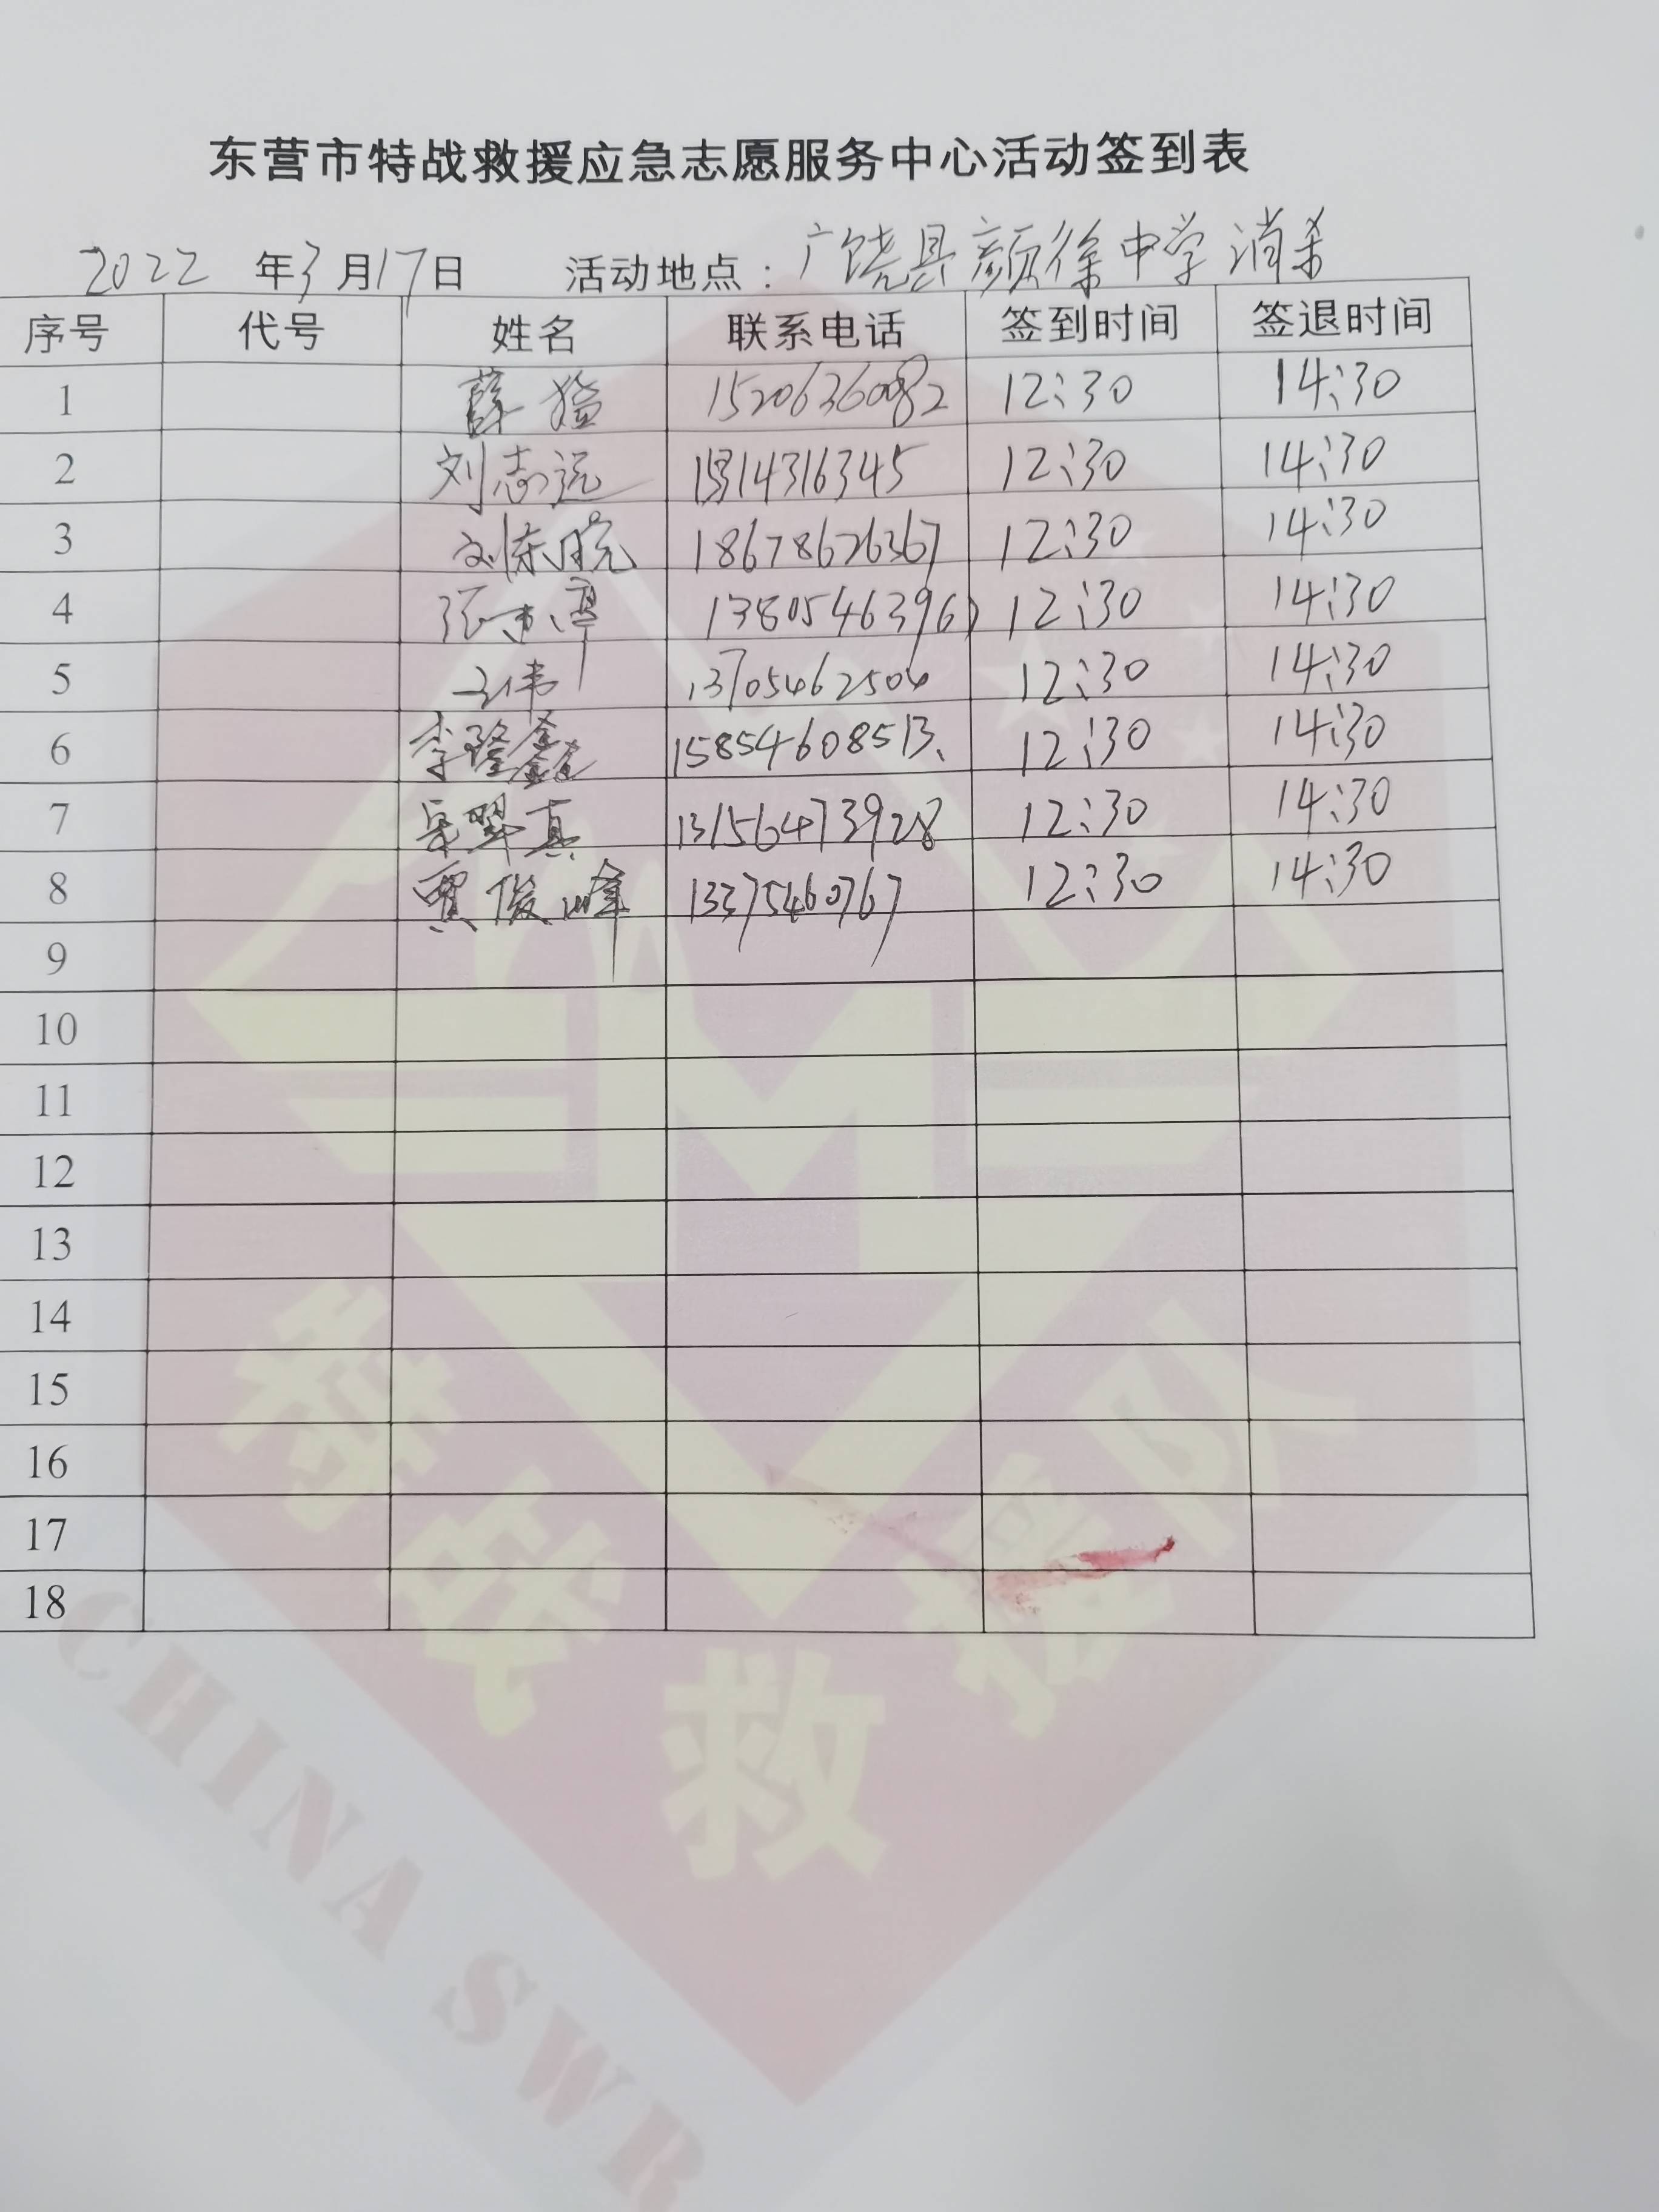 东营市特战救援应急志愿服务中心活动签到表
2022 年 3 月 17 日 活动地点：广饶县颜徐中学消杀
序号 代号 姓名 联系电话 签到时间 签退时间
1 薛猛 15206360082 12:30 14:30
2 刘志远 12:30 14:30
3 刘 18678626367 12:30 14:30
4 张 12:30 14:30
5 王伟 13705462504 12:30 14:30
6 李隆鑫 15854608513、 12:30 14:30
7 翠真 13156473928 12:30 14:30
8 贾俊峰 13375460767 12:30 14:30
9
10
11
12
13
14
15
16
17
18
特战救援队
CHINA SWR